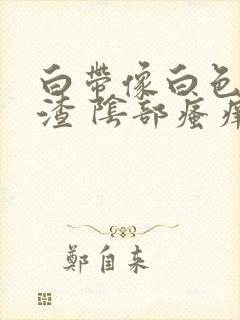 白帶像白色
渣 陰部瘙痒
鄭自来